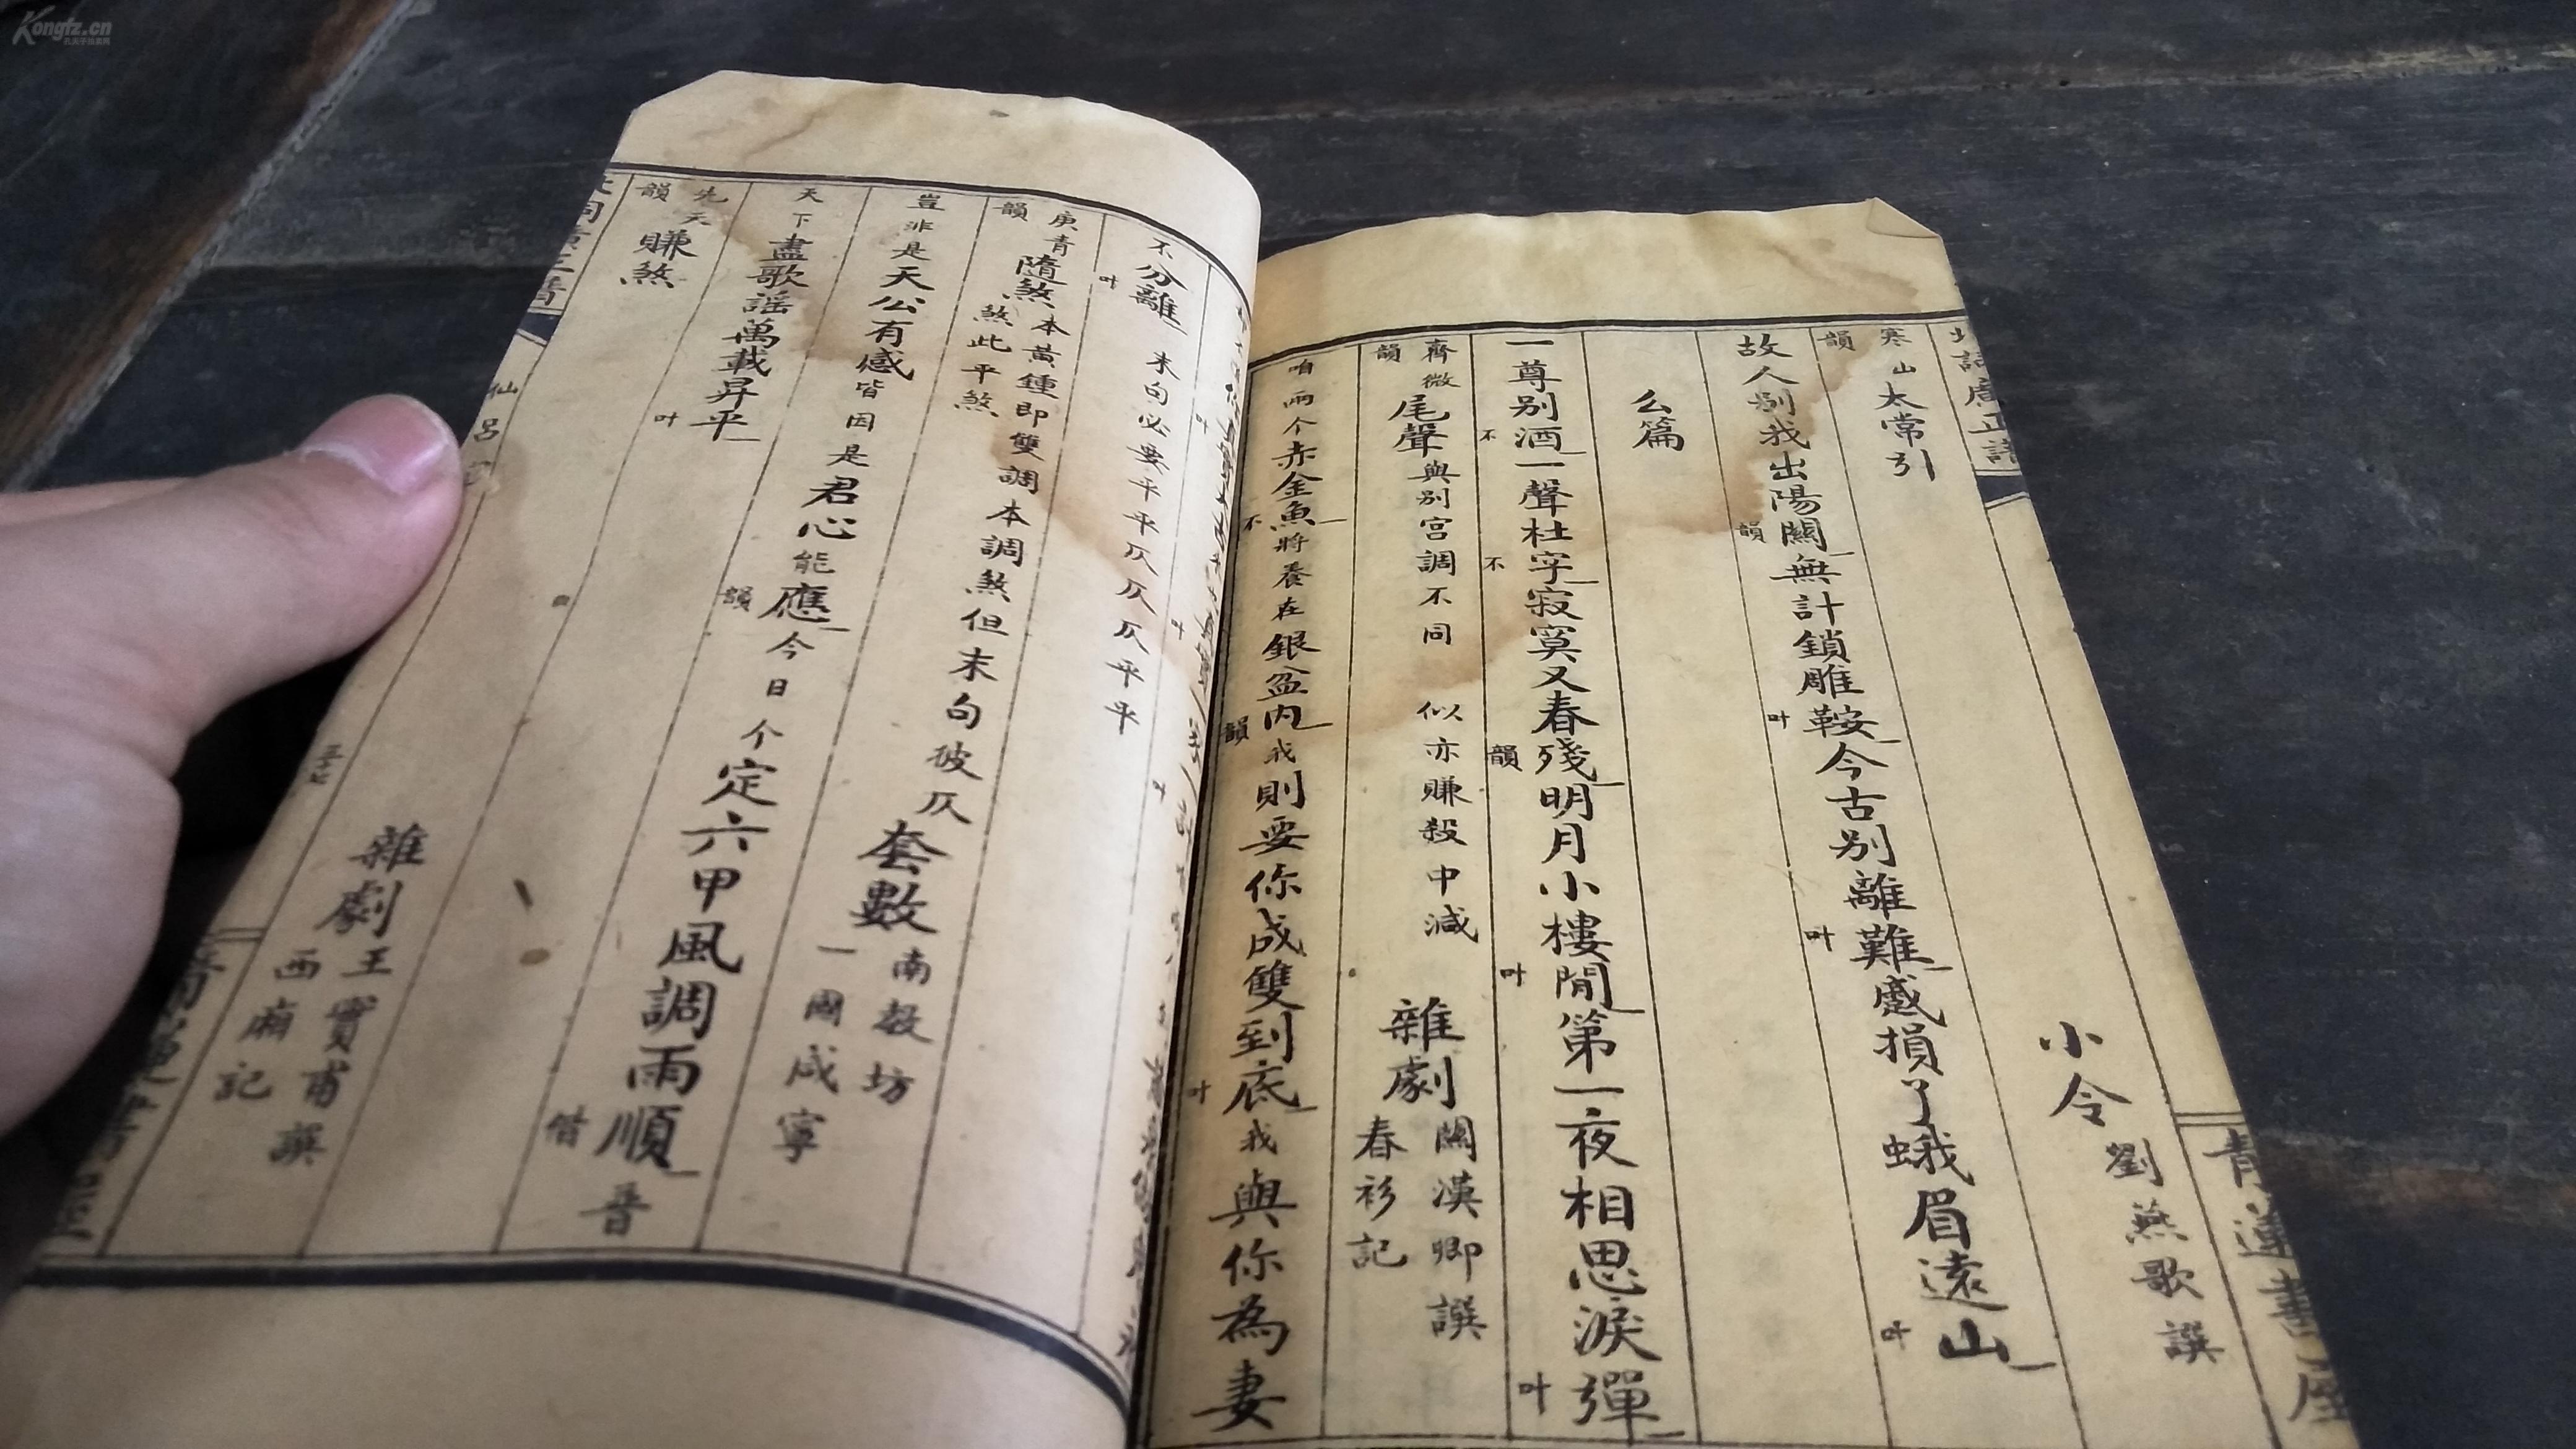 Kongfz.cn
寒山韻 太常引 小令 劉燕歌譔
故人別我出陽關韻無計鎖雕鞍叶今古別離難叶蹙損了蛾眉遠山叶
么篇
一尊別酒不一聲杜宇不寂寞又春殘韻明月小樓閒叶第一夜相思淚彈叶
齊微韻 尾聲 與別宮調不同 似亦賺殺中減 雜劇 關漢卿譔 春衫記
咱兩个赤金魚不將養在銀盆內韻我則要你成雙到底叶我與你為妻
不分離叶 末句必要平平仄仄仄平平
庚青韻 隨煞 本黃鍾即雙調本調煞但末句彼仄煞此平煞 套數 南教坊 一國咸寧
豈非是天公有感皆因是君心能應韻今日个定六甲風調雨順借普
天下盡歌謡萬載昇平叶
先天韻 賺煞 雜劇 王實甫譔 西廂記
仙呂